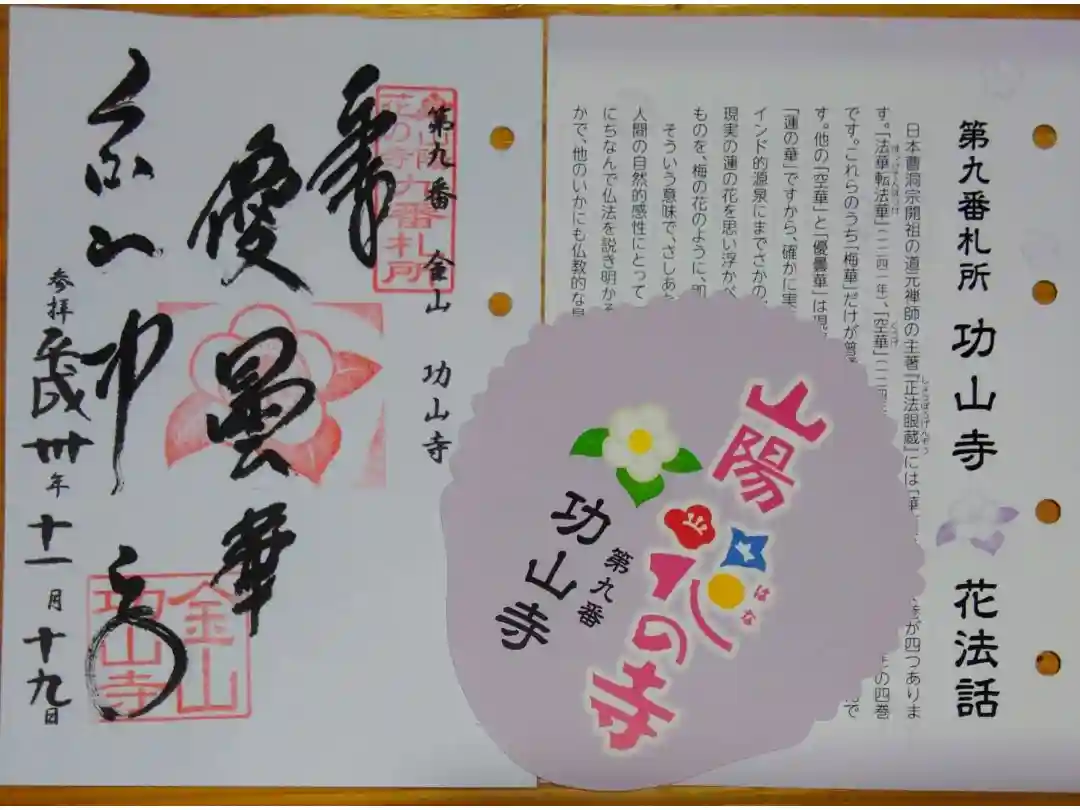 第九番札所 功山寺 花法話
日本曹洞宗開祖の道元禅師の主著『正法眼蔵』には「華 が四つありま
しょうぼうげんぞう
す。「法華転法華」(一二四一年)、「空華」(一二四 年の四巻
ほっけてんほっけ
くうげ
です。これらのうち「梅華」だけが普 で
す。他の「空華」と「優曇華」は現
「蓮の華」ですから、確かに実
インド的源泉にまでさかの
現実の蓮の花を思い浮かべ
ものを、梅の花のように、即
そういう意味で、さしあ
人間の自然的感性にとって
にちなんで仏法を説き明かそ
かで、他のいかにも仏教的な
山陽
花の寺
はな
第九番
功山寺
第九番 金山 功山寺
山陽
花の寺九番札所
奉
優曇華
金山
功山寺
参拝 平成卅年十一月十九日